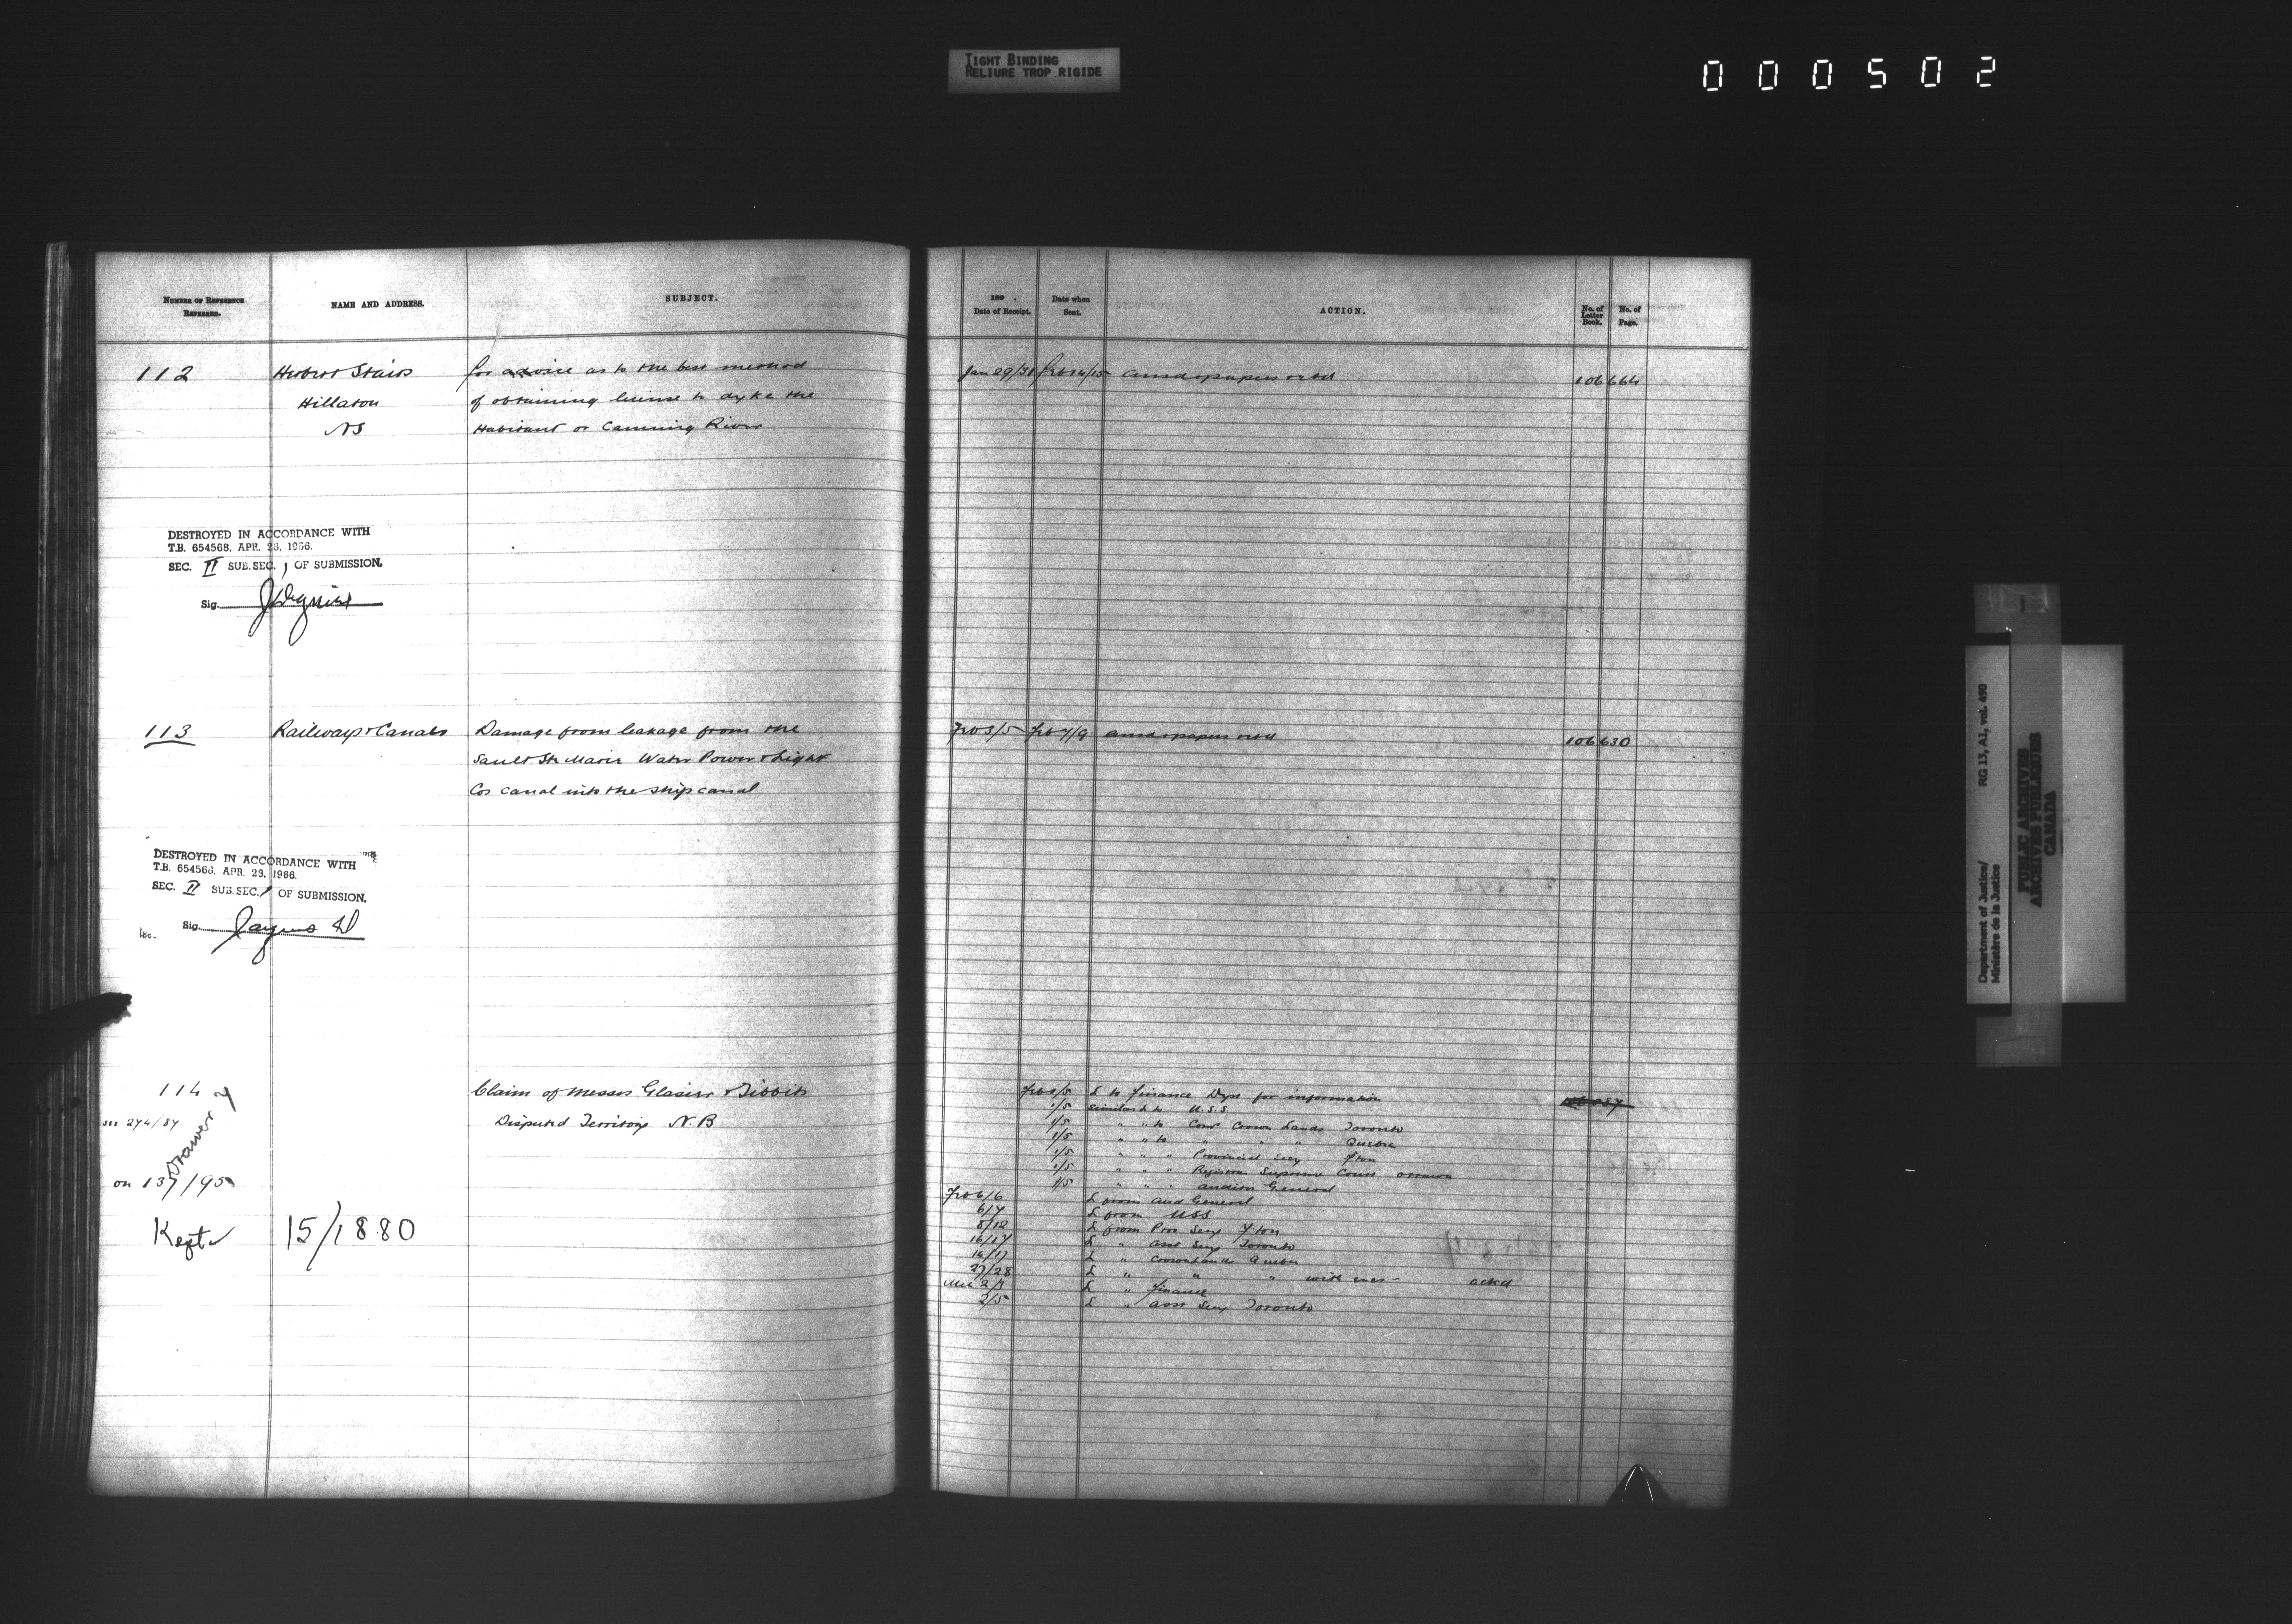 TIGHT BINDING
RELIURE TROP RIGIDE
000502
NUMBER OF REFERENCE REFERRED.
NAME AND ADDRESS.
SUBJECT.
112
Herbert Stairs
Hillaton
NS
for advice as to the best method
of obtaining license to dyke the
Habitant or Canning River
DESTROYED IN ACCORDANCE WITH
T.B. 654568, APR. 26, 1966.
SEC. II SUB.SEC. 1 OF SUBMISSION.
Sig.
113
Railways & Canals
Damage from leakage from the
Sault Ste Marie Water Power & Light
Cos canal into the ship canal
DESTROYED IN ACCORDANCE WITH
T.B. 654568, APR. 26, 1966.
SEC. II SUB.SEC. 1 OF SUBMISSION.
Sig.
114
see 274/87
Drawer
on 137/95
Kept
15/1880
Claim of Messrs Glasier & Tibbits
Disputed Territory N.B
Date of Receipt.
Date when Sent.
ACTION.
No. of Letter Book.
No. of Page.
Jan 29/31 Feb 14/15 ansd & papers retd 106 664
Feb 3/5 Feb 7/9 ansd & papers retd 106 630
Feb 5/5 L to Finance Dept for information
1/5 Similar L to U.S.S
1/5 " " to Comr Crown Lands Toronto
1/5 " " to " " " Quebec
1/5 " " " Provincial Secy Fton
1/5 " " " Registrar Supreme Court Ottawa
1/5 " " " Auditor General
Feb 6/6 L from Aud General
6/7 L from USS
8/12 L from Prov Secy Fton
16/17 L " Asst Secy Toronto
16/17 L " Crown Lands Quebec
27/28 L " " " with encs - ackd
Mar 2/3 L " Finance
2/5 L " Asst Secy Toronto
Department of Justice/
Ministère de la Justice
RG 13, A1, vol. 490
PUBLIC ARCHIVES
ARCHIVES PUBLIQUES
CANADA